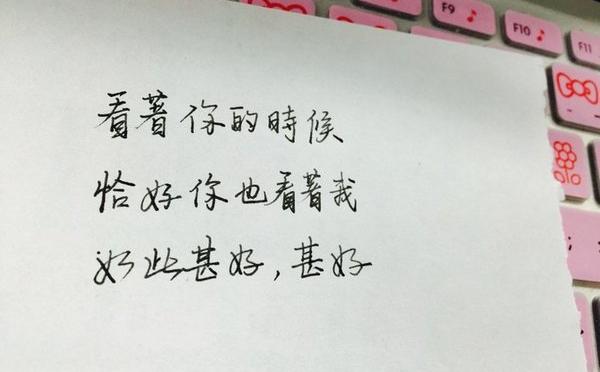 看著你的時候
恰好你也看著我
如此甚好,甚好
F9
F10
F11
;